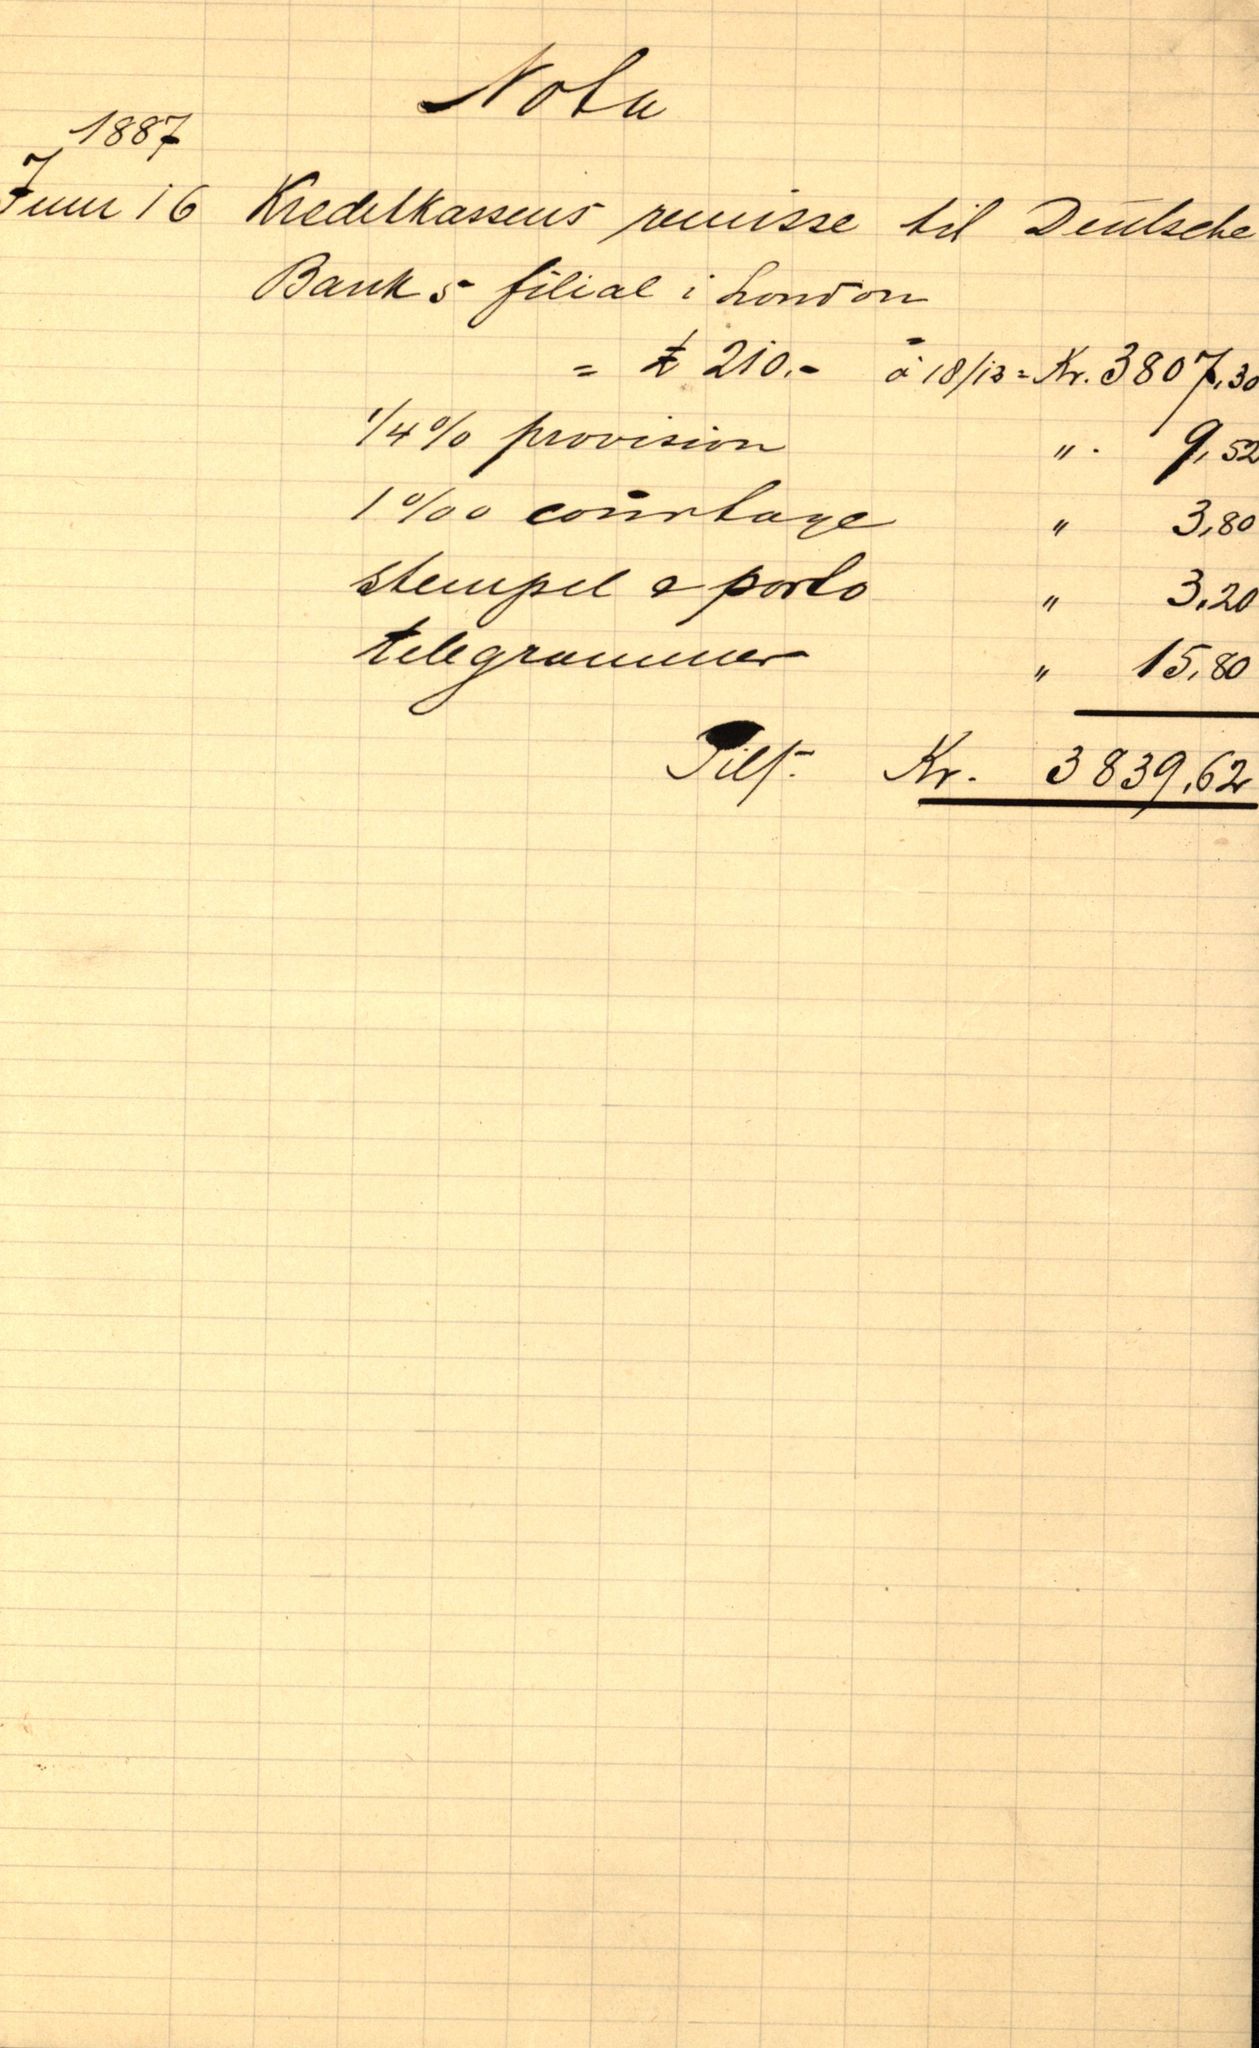 Nota
1887
Juni 16 Kreditkassens remisse til Deutsche
Bank s filial i London
= £ 210.- à 18/13 = Kr. 3807,30
1/4 % provision " . 9,52
1 ‰ courtage " 3,80
stempel & porto " 3,20
telegrammer " 15,80
Tils. Kr. 3839,62